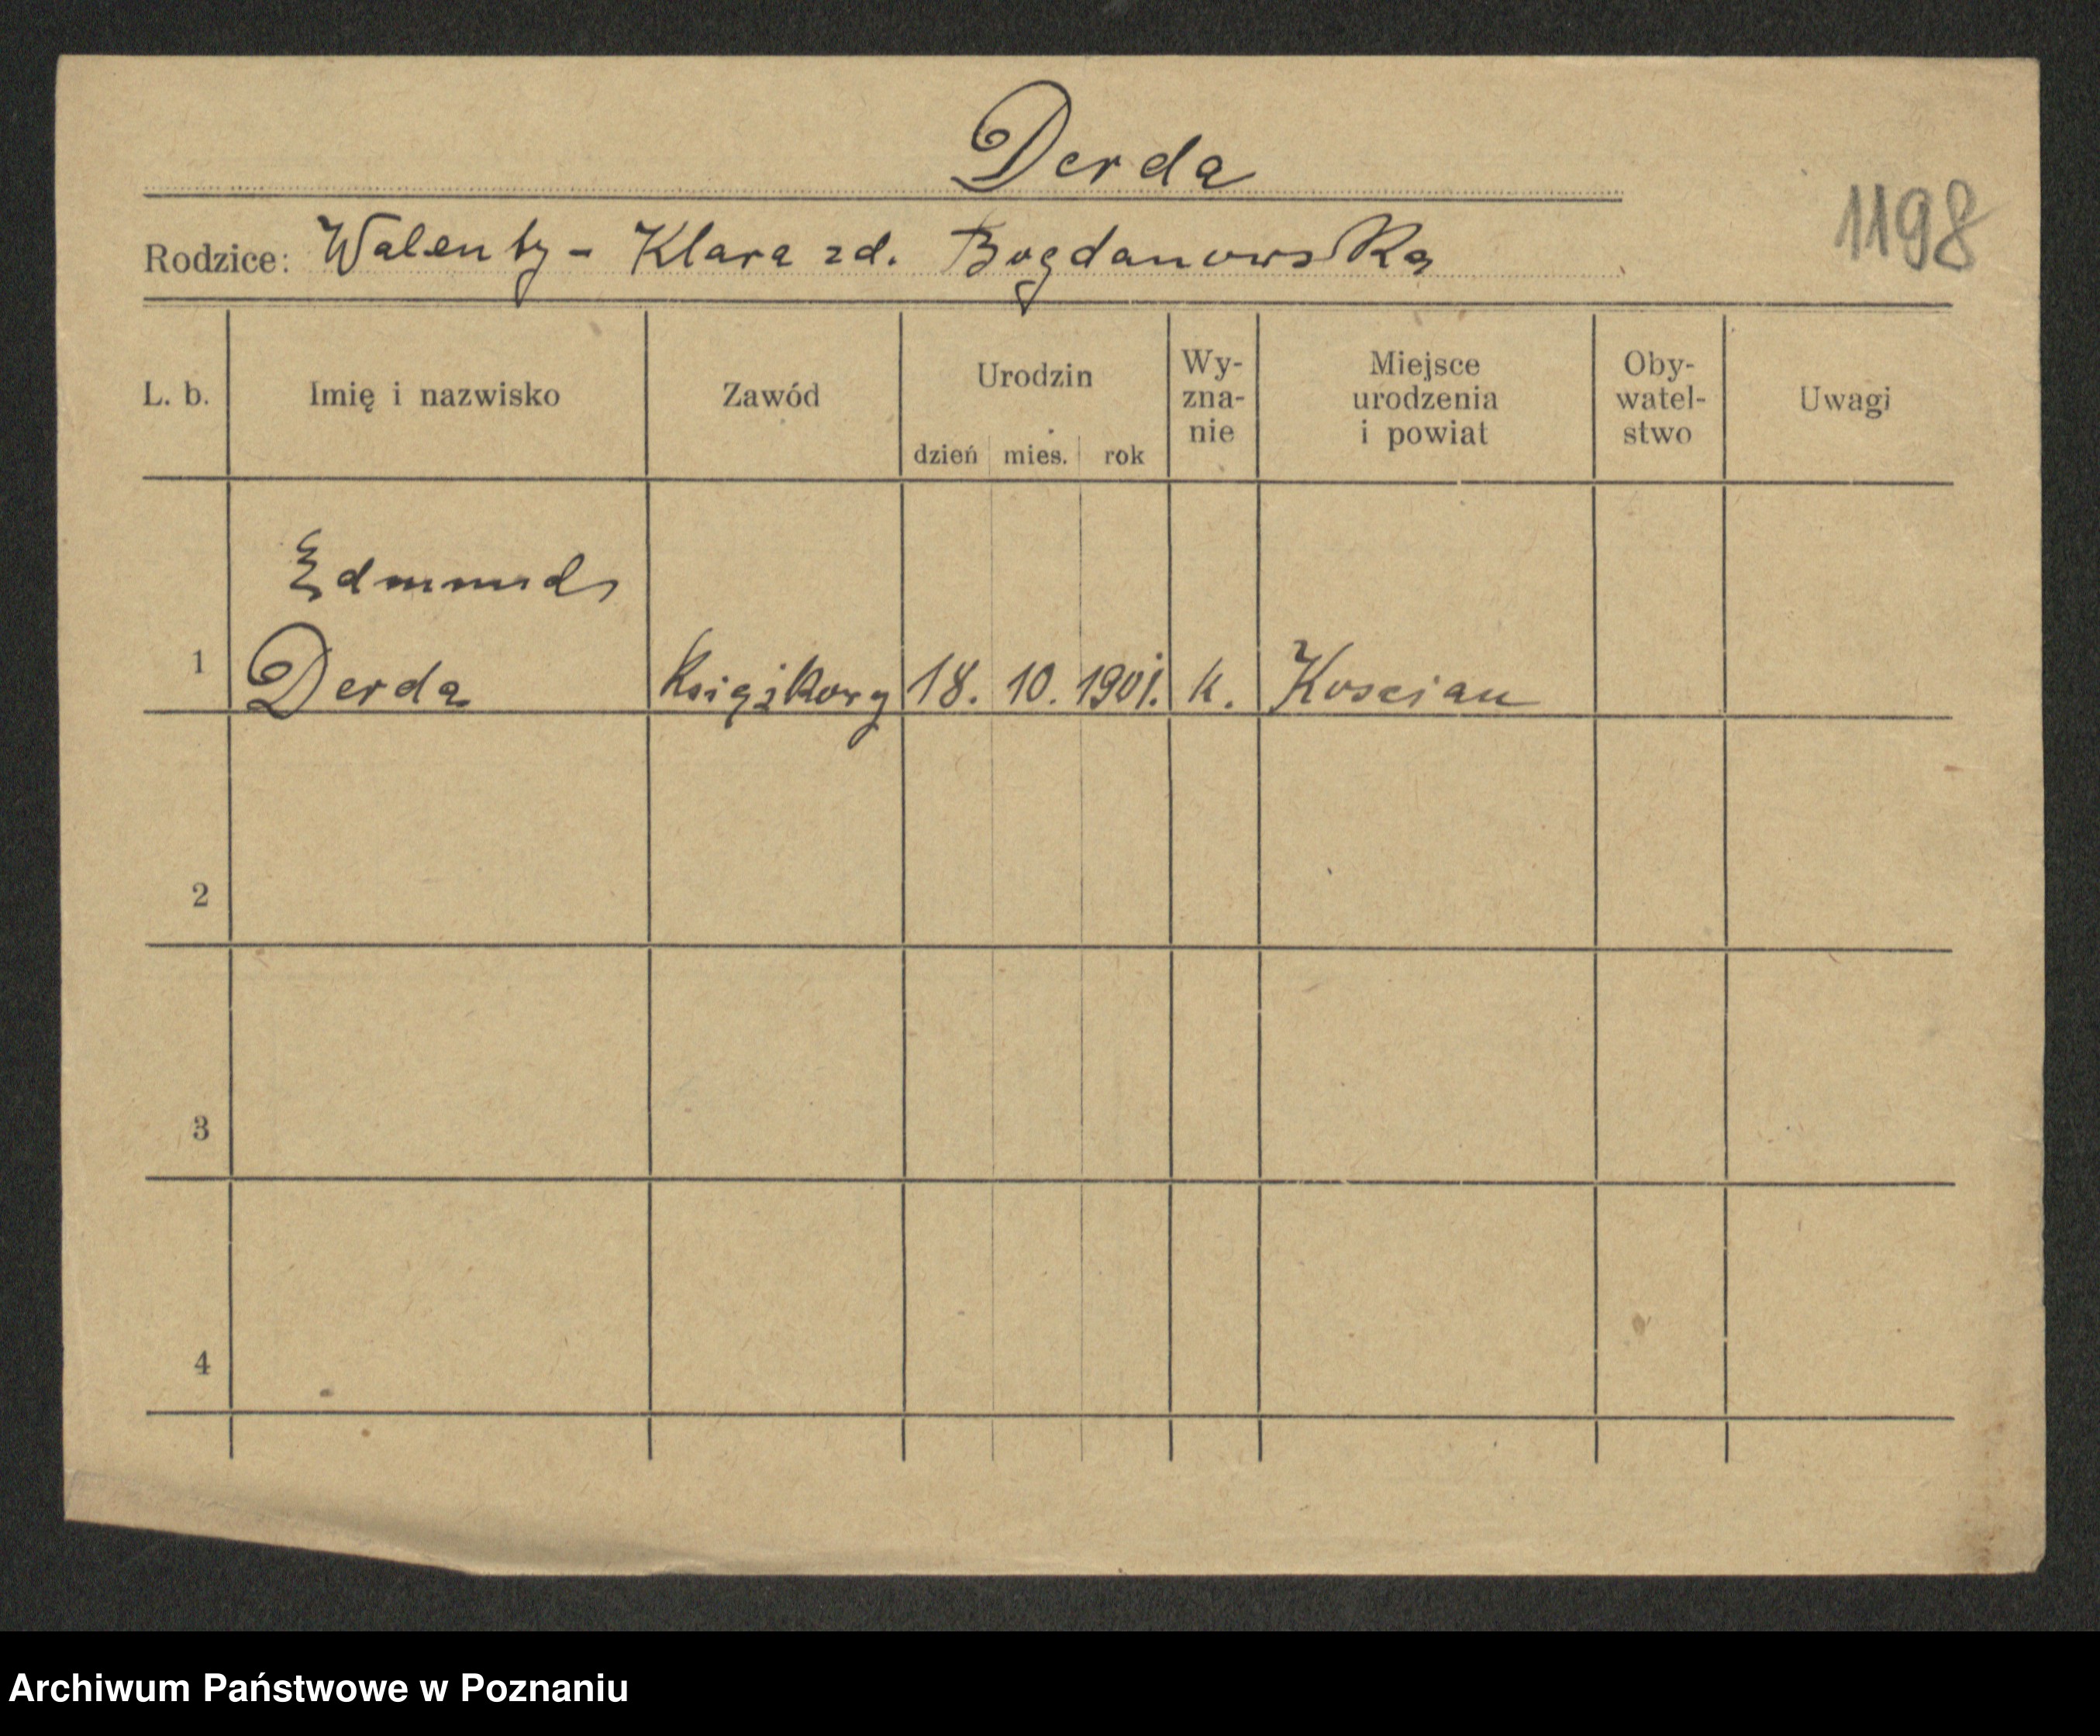 Derda
1198
Rodzice: Walenty - Klara zd. Bogdanowska
L. b.
Imię i nazwisko
Zawód
Urodzin
dzień mies. rok
Wy-
zna-
nie
Miejsce
urodzenia
i powiat
Oby-
watel-
stwo
Uwagi
Edmund
1 Derda Książkowy 18. 10. 1901. k. Koscian
2
3
4
Archiwum Państwowe w Poznaniu